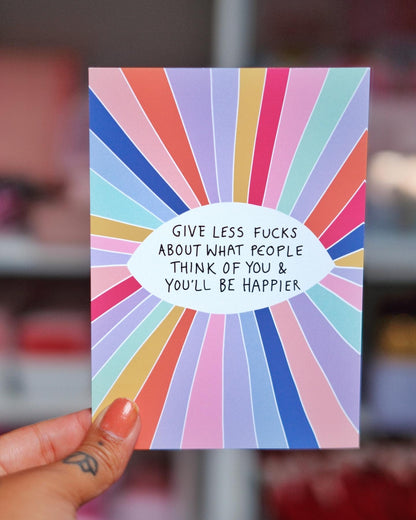 GIVE LESS FUCKS
ABOUT WHAT PEOPLE
THINK OF YOU &
YOU'LL BE HAPPIER